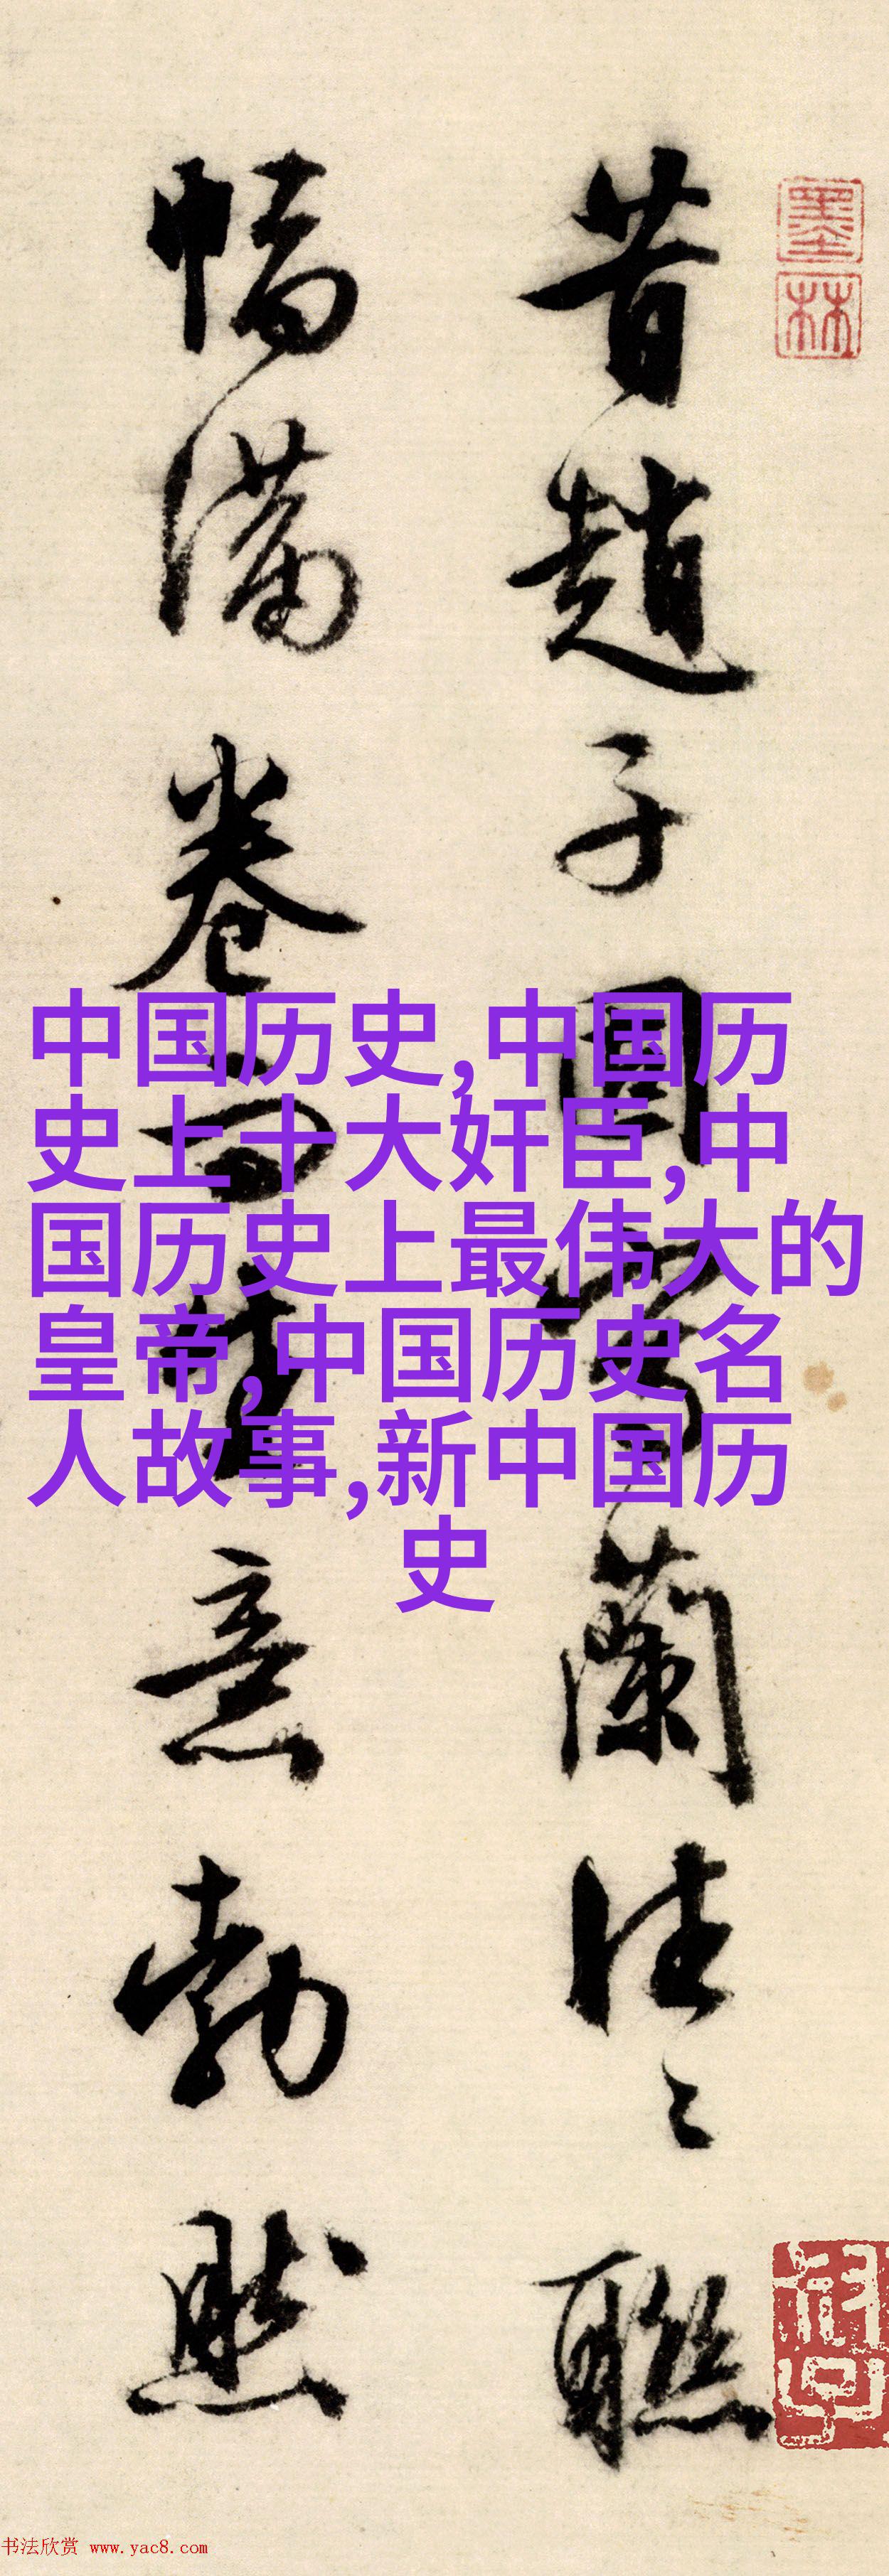 昔趙子固寫蘭往々聯
幅滿卷而生意勃然
墨
林
中国历史,中国历
史上十大奸臣,中
国历史上最伟大的
皇帝,中国历史名
人故事,新中国历
史
书法欣赏 www.yac8.com